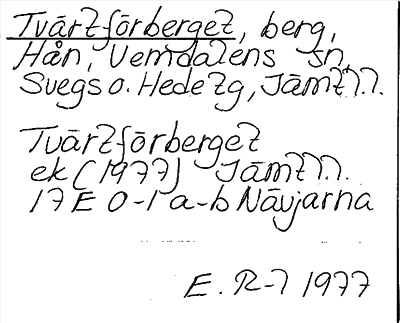 Tvärtförberget, berg,
Hån, Vemdalens sn,
Svegs o. Hede tg, Jämtl.l.
Tvärtförberget
ek (1977) Jämtl.l.
17 E 0-1 a-b Nävjarna
E. R-l 1977